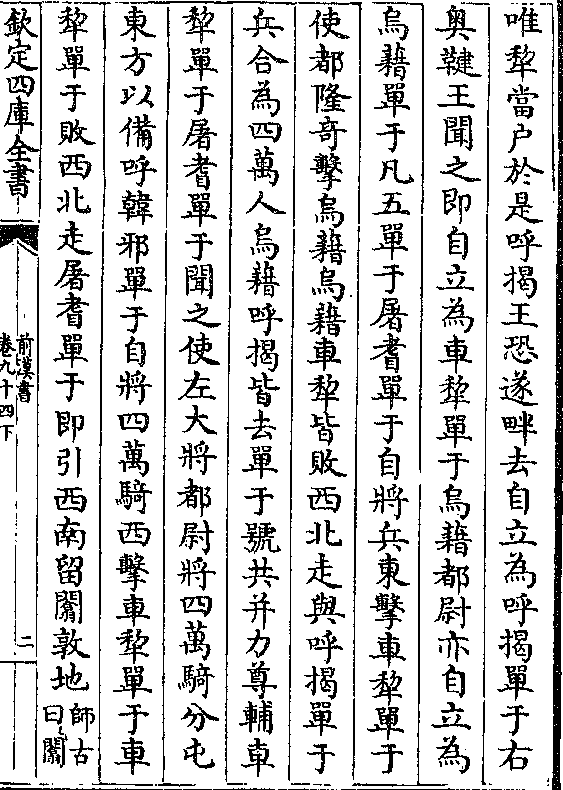 唯犂當户於是呼揭王恐遂畔去自立為呼揭單于右
奥鞬王聞之即自立為車犂單于烏藉都尉亦自立為
烏藉單于凡五單于屠耆單于自將兵東擊車犂單于
使都隆奇擊烏藉烏藉車犂皆敗西北走與呼揭單于
兵合為四萬人烏藉呼揭皆去單于號共并力尊輔車
犂單于屠耆單于聞之使左大將都尉將四萬騎分屯
東方以備呼韓邪單于自將四萬騎西擊車犂單于車
犂單于敗西北走屠耆單于即引西南留闟敦地師古
曰闟
欽定四庫全書
前漢書
卷九十四下
二